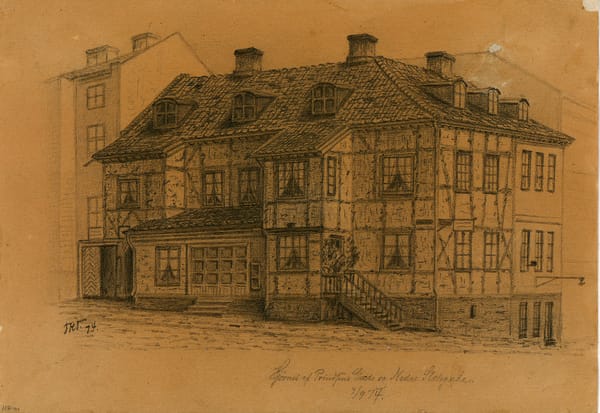 JRT. 74.
Hjørnet af Prindsens Gade og Nedre Slotsgade.
7/9 74.